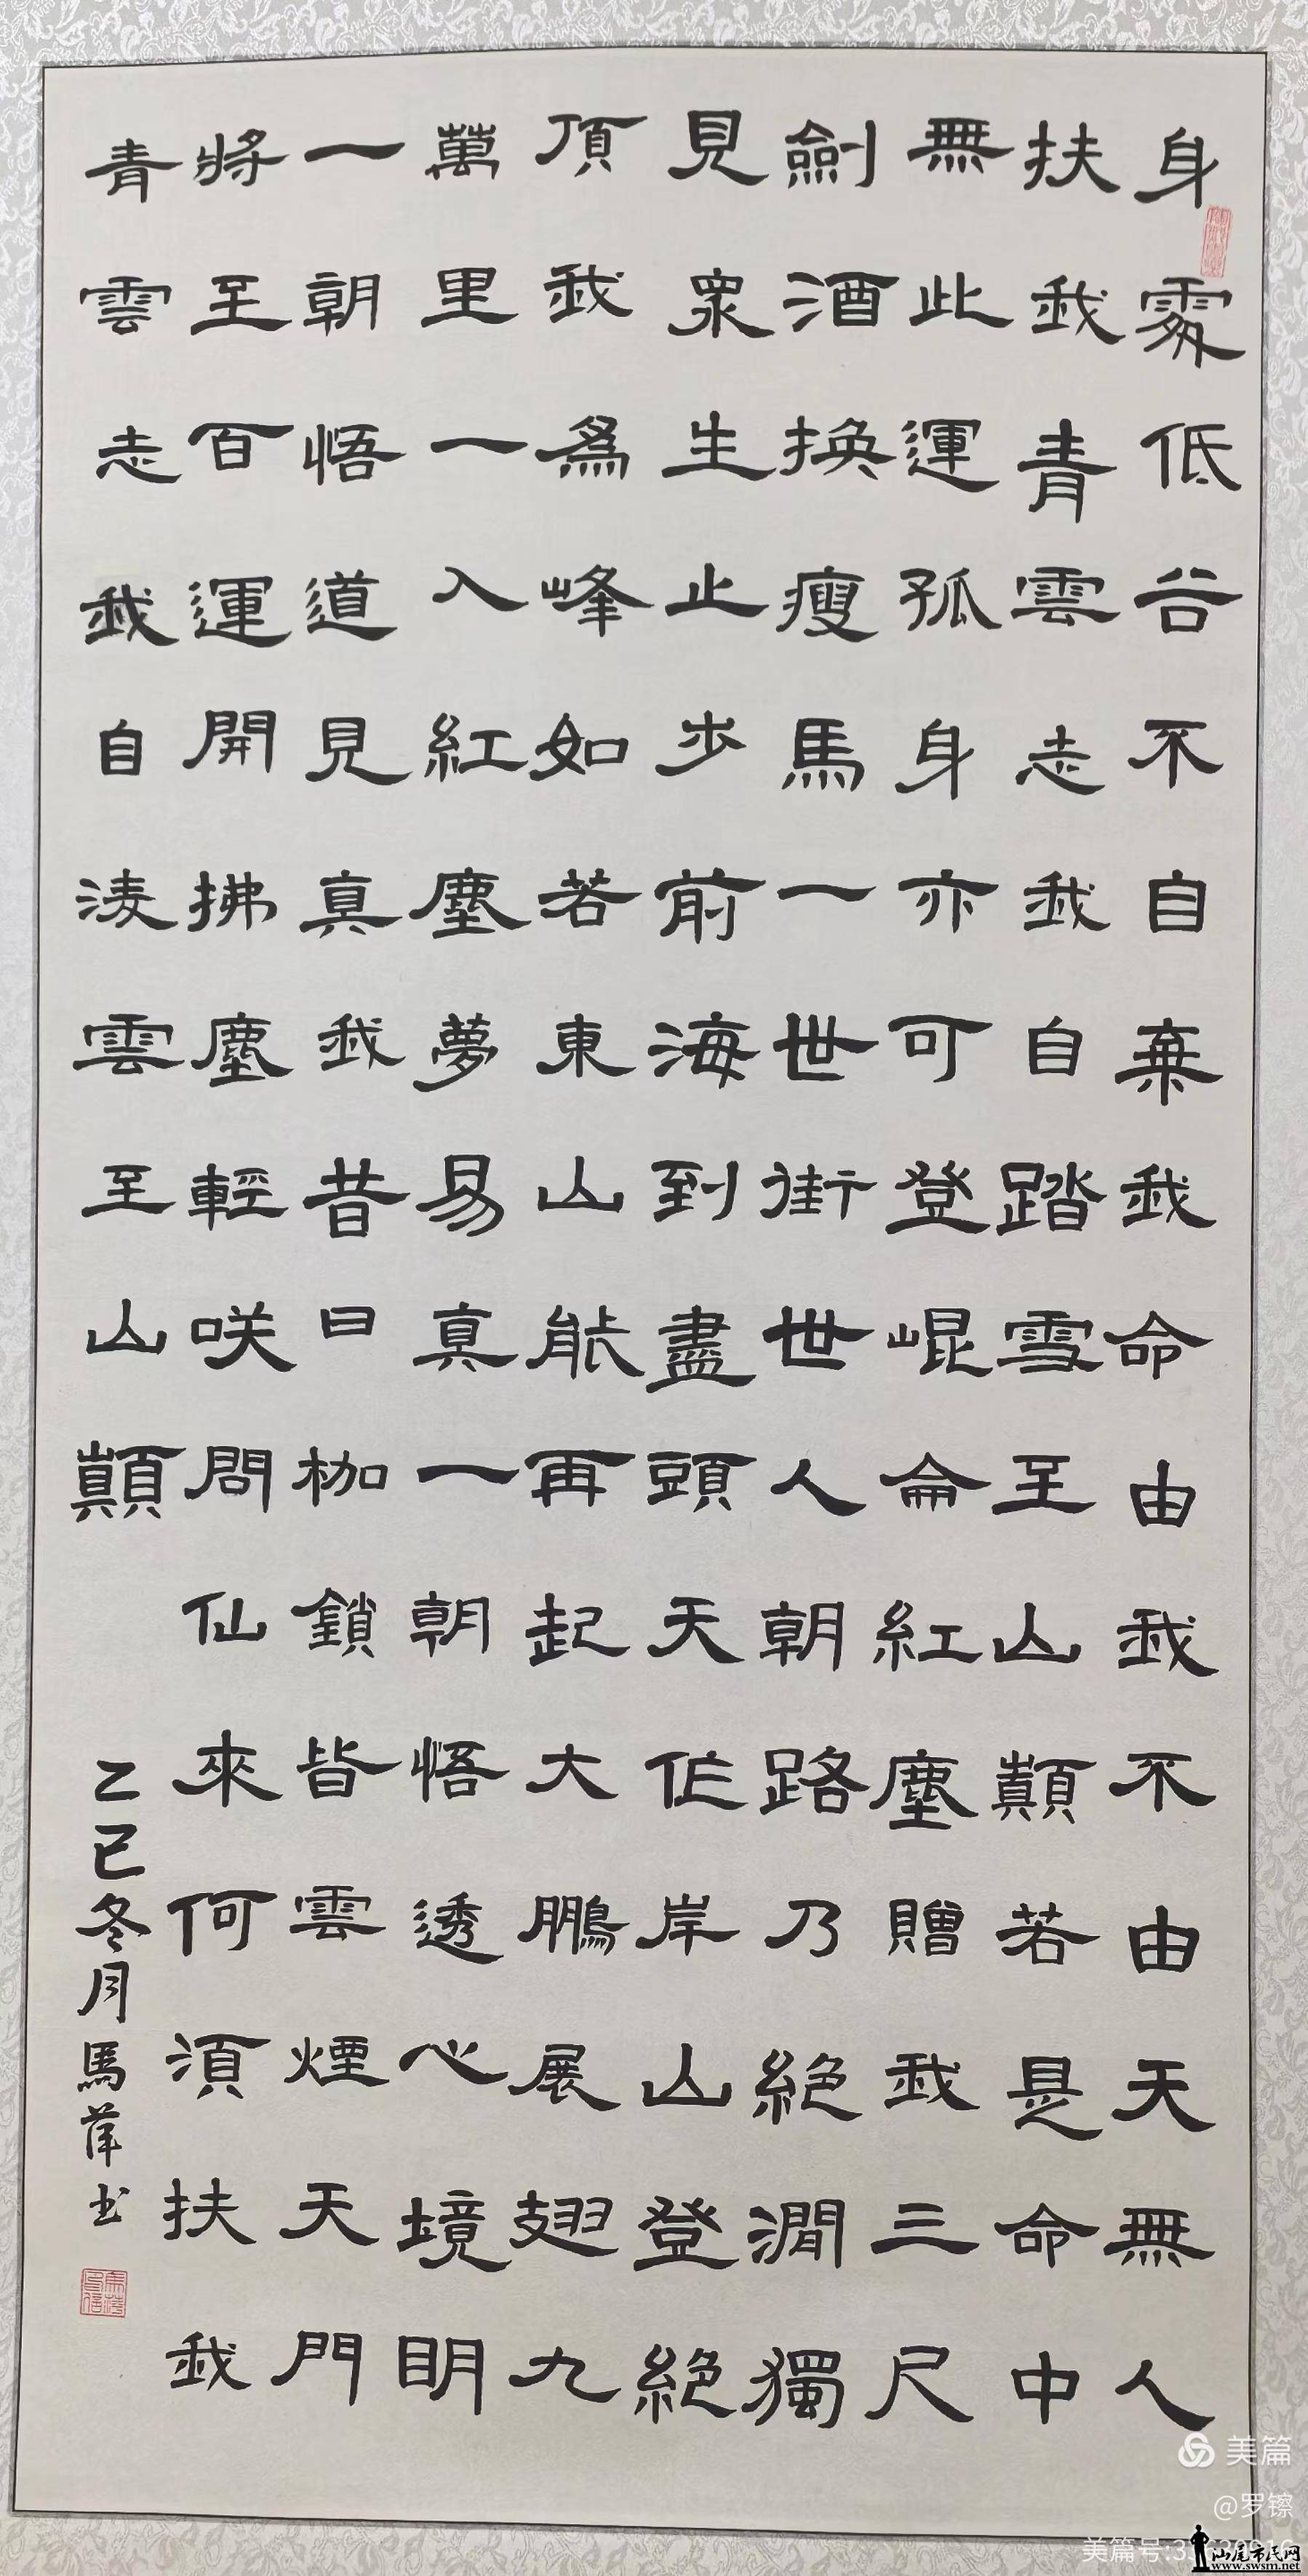 身處低谷不自棄我命由我不由天無人
扶我青雲志我自踏雪至山巔若是命中
無此運孤身亦可登崐侖紅塵贈我三尺
劍酒換瘦馬一世街世人朝路乃絕澗獨
見眾生止步前海到盡頭天作岸山登絕
頂我為峰如若東山能再起大鵬展翅九
萬里一入紅塵夢易真一朝悟透心境明
一朝悟道見真我昔日枷鎖皆雲煙天門
將至百運開拂塵輕咲問仙來何須扶我
青雲志我自淩雲至山巔
乙巳冬月馬萍书
美篇
@罗镲
美篇号:
汕尾市民网
www.swsm.net